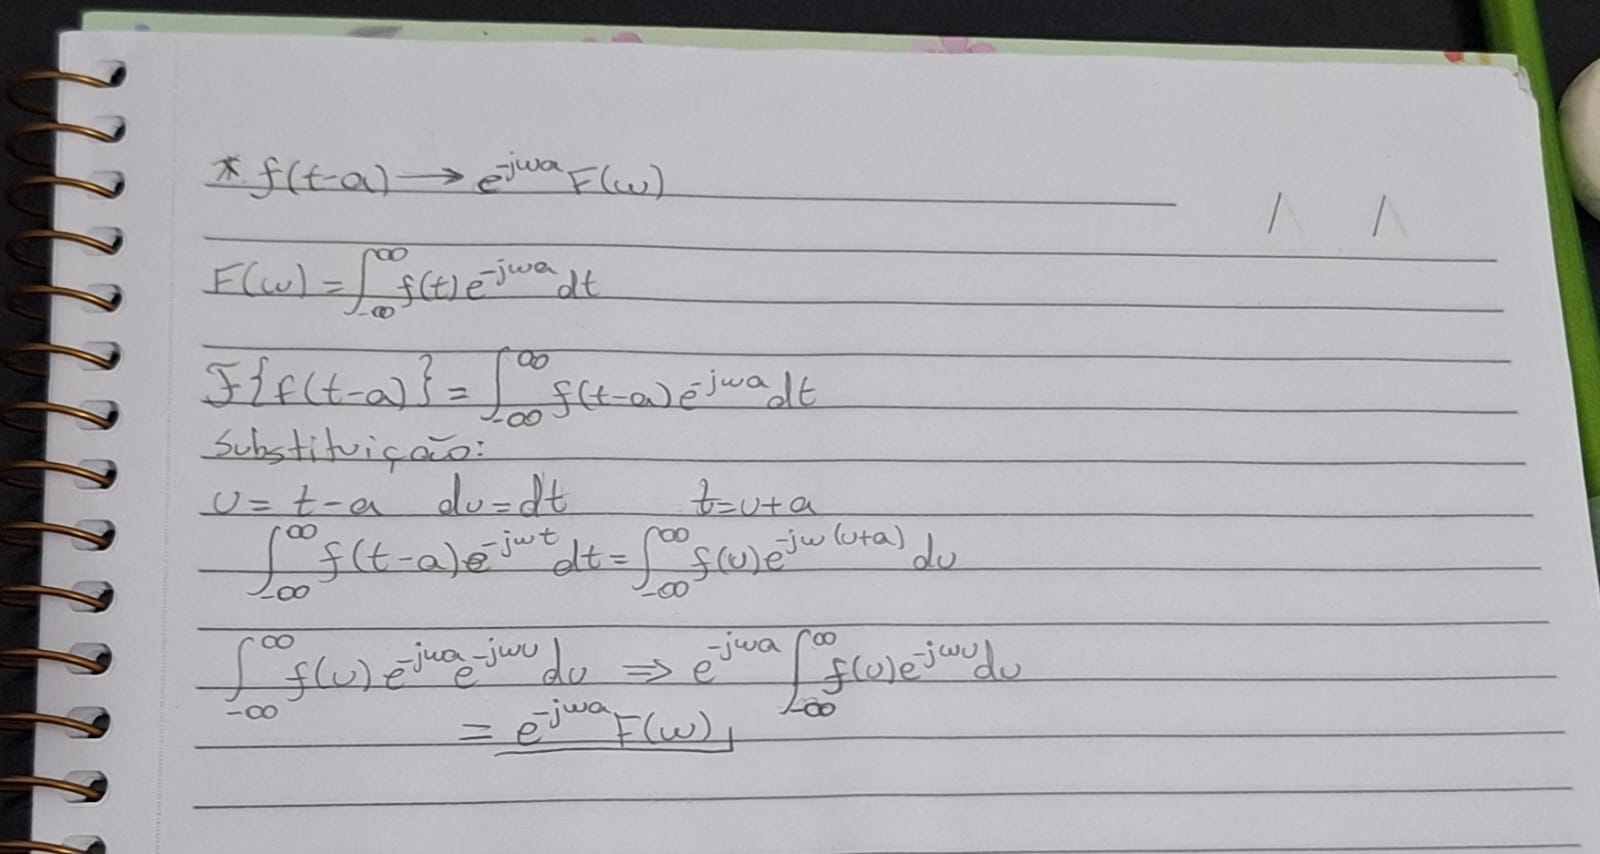 * f(t-a) → e^{-jωa} F(ω)
F(ω) = ∫_{-∞}^{∞} f(t) e^{-jωa} dt
F{f(t-a)} = ∫_{-∞}^{∞} f(t-a) e^{-jωa} dt
Substituição:
u = t-a du = dt t = u+a
∫_{-∞}^{∞} f(t-a) e^{-jωt} dt = ∫_{-∞}^{∞} f(u) e^{-jω(u+a)} du
∫_{-∞}^{∞} f(u) e^{-jωa} e^{-jωu} du ⇒ e^{-jωa} ∫_{-∞}^{∞} f(u) e^{-jωu} du
= e^{-jωa} F(ω)